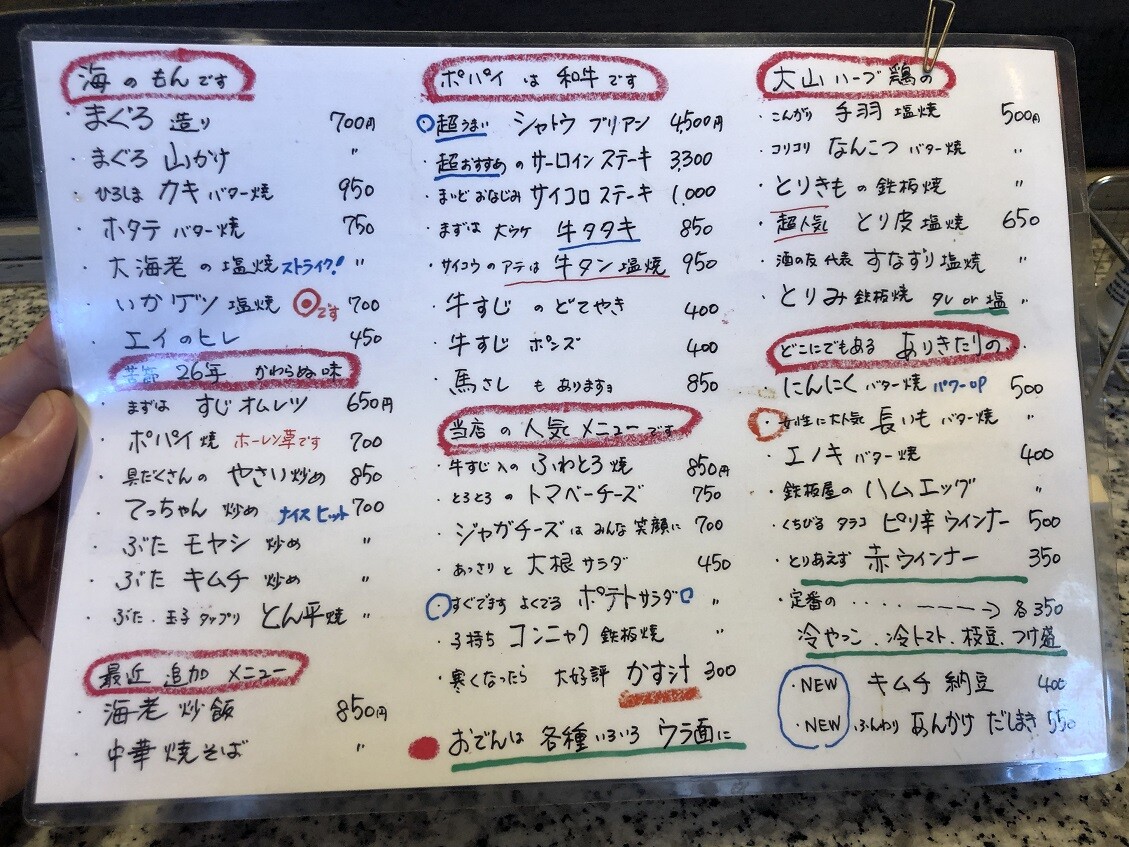 海のもんです
・まぐろ 造り 700円
・まぐろ 山かけ 〃
・ひろしま カキ バター焼 950
・ホタテ バター焼 750
・大海老の塩焼 ストライク! 〃
・いかゲソ 塩焼 ◎です 700
・エイのヒレ 450
26年 かわらぬ味
・まずは すじオムレツ 650円
・ポパイ焼 ホーレン草です 700
・具だくさんの やさい炒め 850
・てっちゃん 炒め ナイスヒット 700
・ぶた モヤシ 炒め 〃
・ぶた キムチ 炒め 〃
・ぶた.玉子 タップリ とん平焼 〃
最近 追加 メニュー
・海老 炒飯 850円
・中華 焼そば 〃
ポパイ は 和牛です
○超うまい シャトウ ブリアン 4,500円
・超おすすめの サーロイン ステーキ 3,300
・まいど おなじみ サイコロ ステーキ 1,000
・まずは 大ウケ 牛タタキ 850
・サイコウのアテは 牛タン 塩焼 950
・牛すじ のどてやき 400
・牛すじ ポンズ 400
・馬さし も あります 850
当店の人気メニューです
・牛すじ入の ふわとろ焼 850円
・とろとろの トマベーチーズ 750
・ジャガチーズは みんな 笑顔に 700
・あっさりと 大根サラダ 450
・すぐでます よくでる ポテトサラダ 〃
・子持ち コンニャク 鉄板焼 〃
・寒くなったら 大好評 かす汁 300
●おでんは 各種いろいろ ウラ面に
大山ハーブ鶏の
・こんがり 手羽 塩焼 500円
・コリコリ なんこつ バター焼 〃
・とりきもの鉄板焼 〃
・超人気 とり皮塩焼 650
・酒の友代表 すなずり塩焼 〃
・とりみ鉄板焼 タレ or 塩 〃
どこにでもある ありきたりの
・にんにく バター焼 パワーUP 500
・女性に大人気 長いも バター焼 〃
・エノキ バター焼 400
・鉄板屋の ハムエッグ 〃
・くちびる タラコ ピリ辛ウインナー 500
・とりあえず 赤ウインナー 350
・定番の ・・・・ ----→ 各350
冷やっこ.冷トマト.枝豆.つけ盛
・NEW キムチ 納豆 400
・NEW ふんわり あんかけ だしまき 550